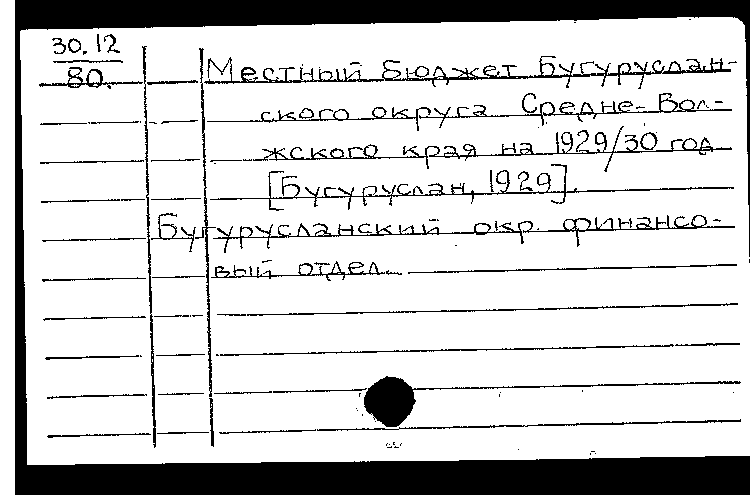 30.12
80.
Местный бюджет Бугуруслан-
ского округа Средне-Вол-
жского края на 1929/30 год
[Бугуруслан, 1929].
Бугурусланский окр. финансо-
вый отдел.